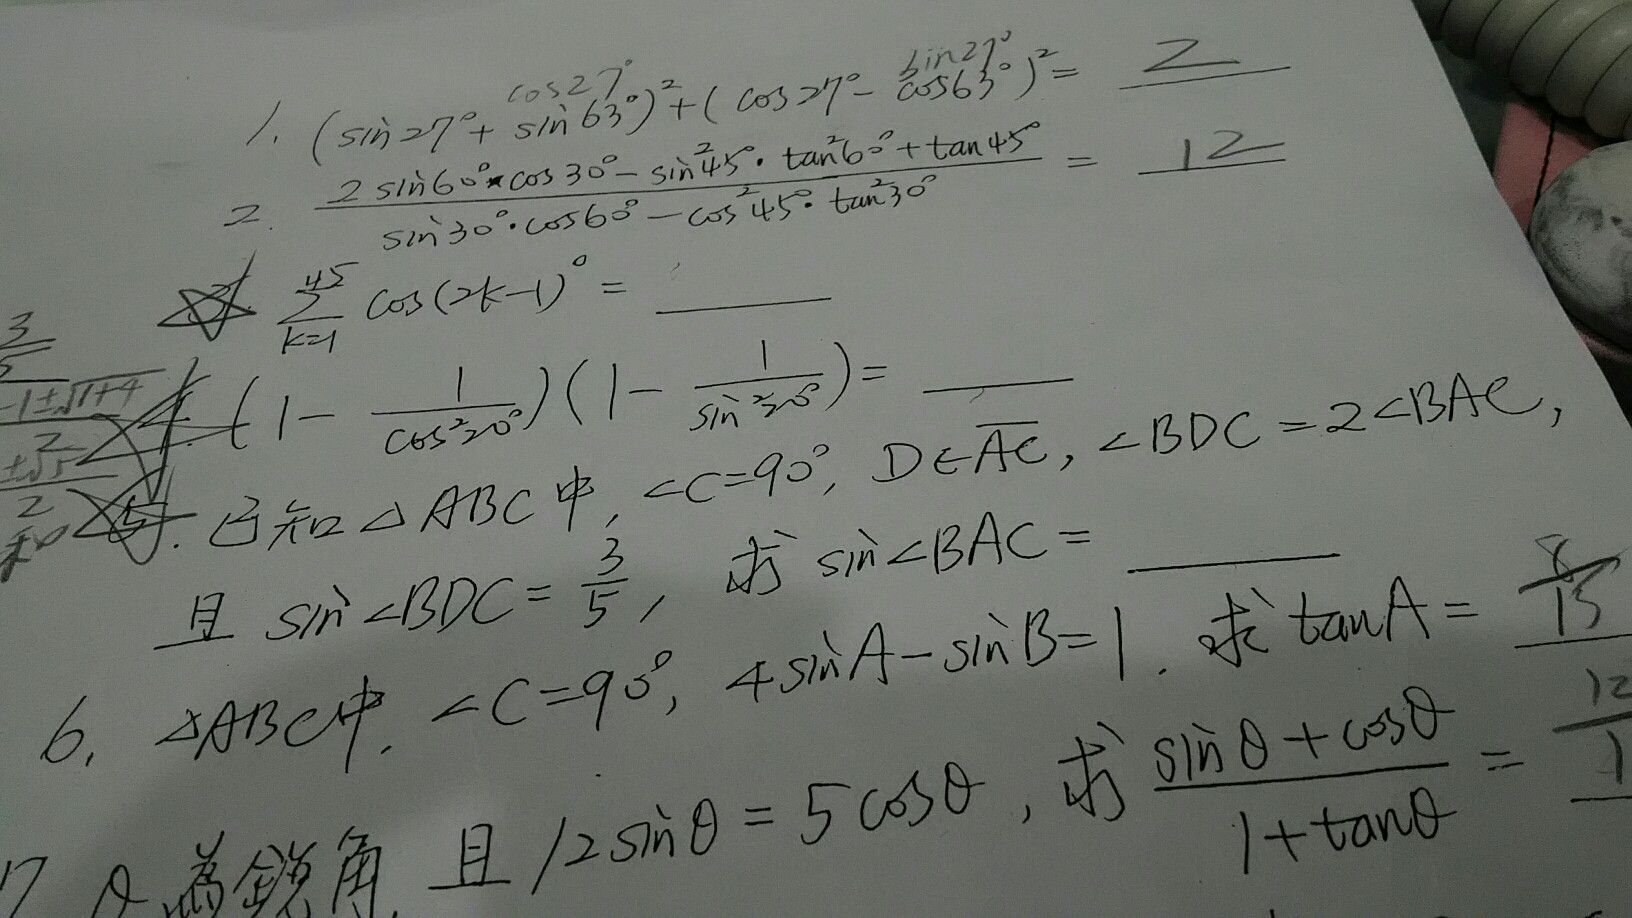 cos27° sin27°
1. (sin27°+ sin63°)²+( cos27°- cos63°)²= 2
2. 2sin60°×cos30°-sin²45°·tan²60°+tan45° / sin30°·cos60°-cos²45°·tan²30° = 12
3. 45 Σ k=1 cos(2k-1)° =
4. (1- 1/cos²20°)(1- 1/sin²20°)=
5. 已知△ABC中, ∠C=90°, D∈AC, ∠BDC=2∠BAC,
且 sin∠BDC= 3/5, 求 sin∠BAC=
6. △ABC中, ∠C=90°, 4sinA-sinB=1. 求tanA= 8/15
7 θ為銳角, 且 12sinθ=5cosθ, 求 sinθ+cosθ / 1+tanθ = 12
3
-1±√1+4
2
±√5
2